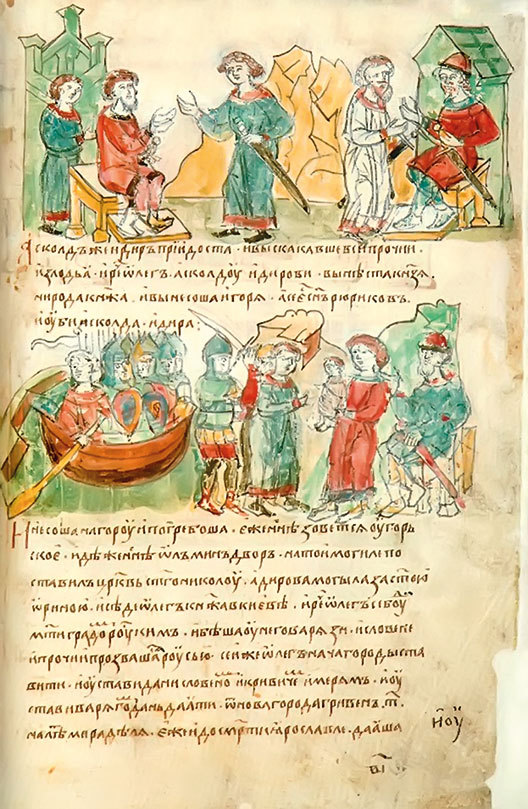 Асколдъ же и Диръ прїидоста · и выскакавше вси прочии ·
изълодьѧ · и рⷱе Ѡлегъ Асколдоу и Дирови · вы нѣста кнѧзѧ ·
ни рода кнѧжа · и вынесоша Игорѧ · а се сн҃ъ Рюриковъ ·
и оубиша Асколда и Дира :
И несоша на гороу и погребоша · еже ннѣ зоветсѧ Оугорь
ское · идѣже ннѣ Ѡлъминъ дворъ · на тои могиле по
ставилъ цр҃квь ст҃го Николоу · а Дирова могыла за ст҃ою
Ѡриною · и сѣде Ѡлегъ кнѧжа в Киевѣ · и рⷱе Ѡлегъ се боуⷣ
мт҃и градоⷨ роускимъ · и бѣша оу него варѧзи · и словене
и прочии прозвашасѧ роусью · сеи же Ѡлегъ нача городы ста
вити · и оустави дани словеноⷨ и кривичеⷨ и мерѧмъ · и оу
стави варѧгоⷨ дань даѧти · ѿ Новагорода гривенъ · т҃ ·
на лѣⷮ мира дѣлѧ · еже и до смр҃ти Ӕрославле · даѧша
и оу